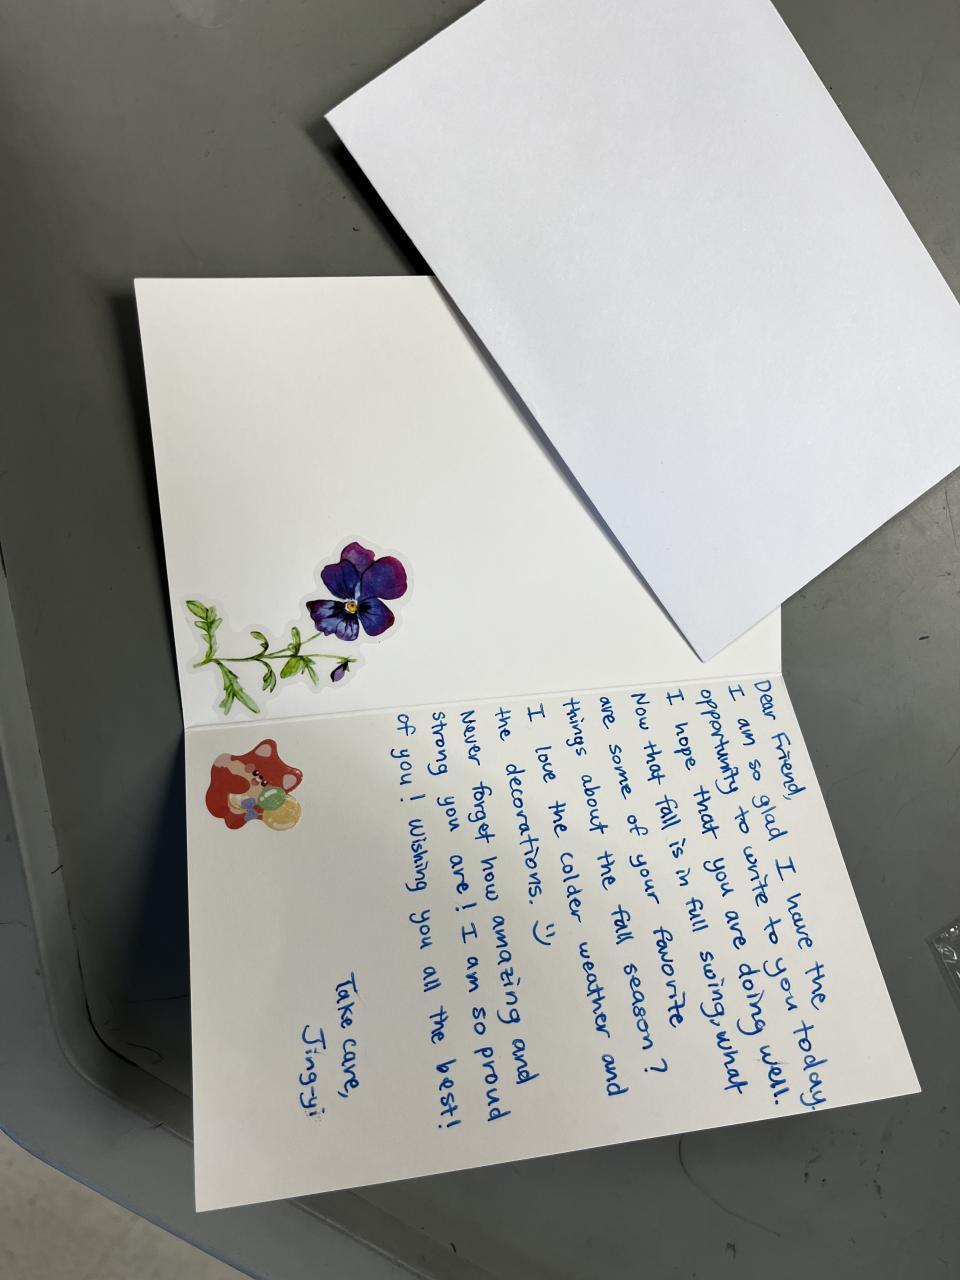 Dear Friend,
I am so glad I have the
opportunity to write to you today.
I hope that you are doing well.
Now that fall is in full swing, what
are some of your favorite
things about the fall season?
I love the colder weather and
the decorations. :)
Never forget how amazing and
strong you are! I am so proud
of you! Wishing you all the best!
Take care,
Jing-yi